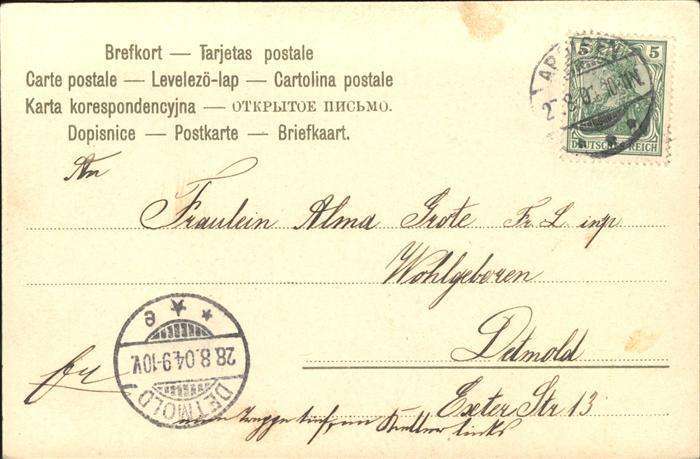 Brefkort — Tarjetas postale
Carte postale — Levelező-lap — Cartolina postale
Karta korespondencyjna — ОТКРЫТОЕ ПИСЬМО.
Dopisnice — Postkarte — Briefkaart.
5 5
DEUTSCHES REICH
An
Fräulein Alma Grote Fr. L. inp
Wohlgeboren
Detmold
Exeter Str 13
links
DETMOLD
28.8.04.9-10V.
e